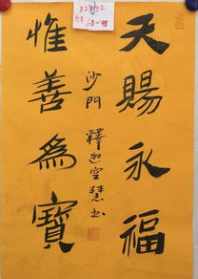 天賜永福
惟善為寶
沙門 釋迦空慧書